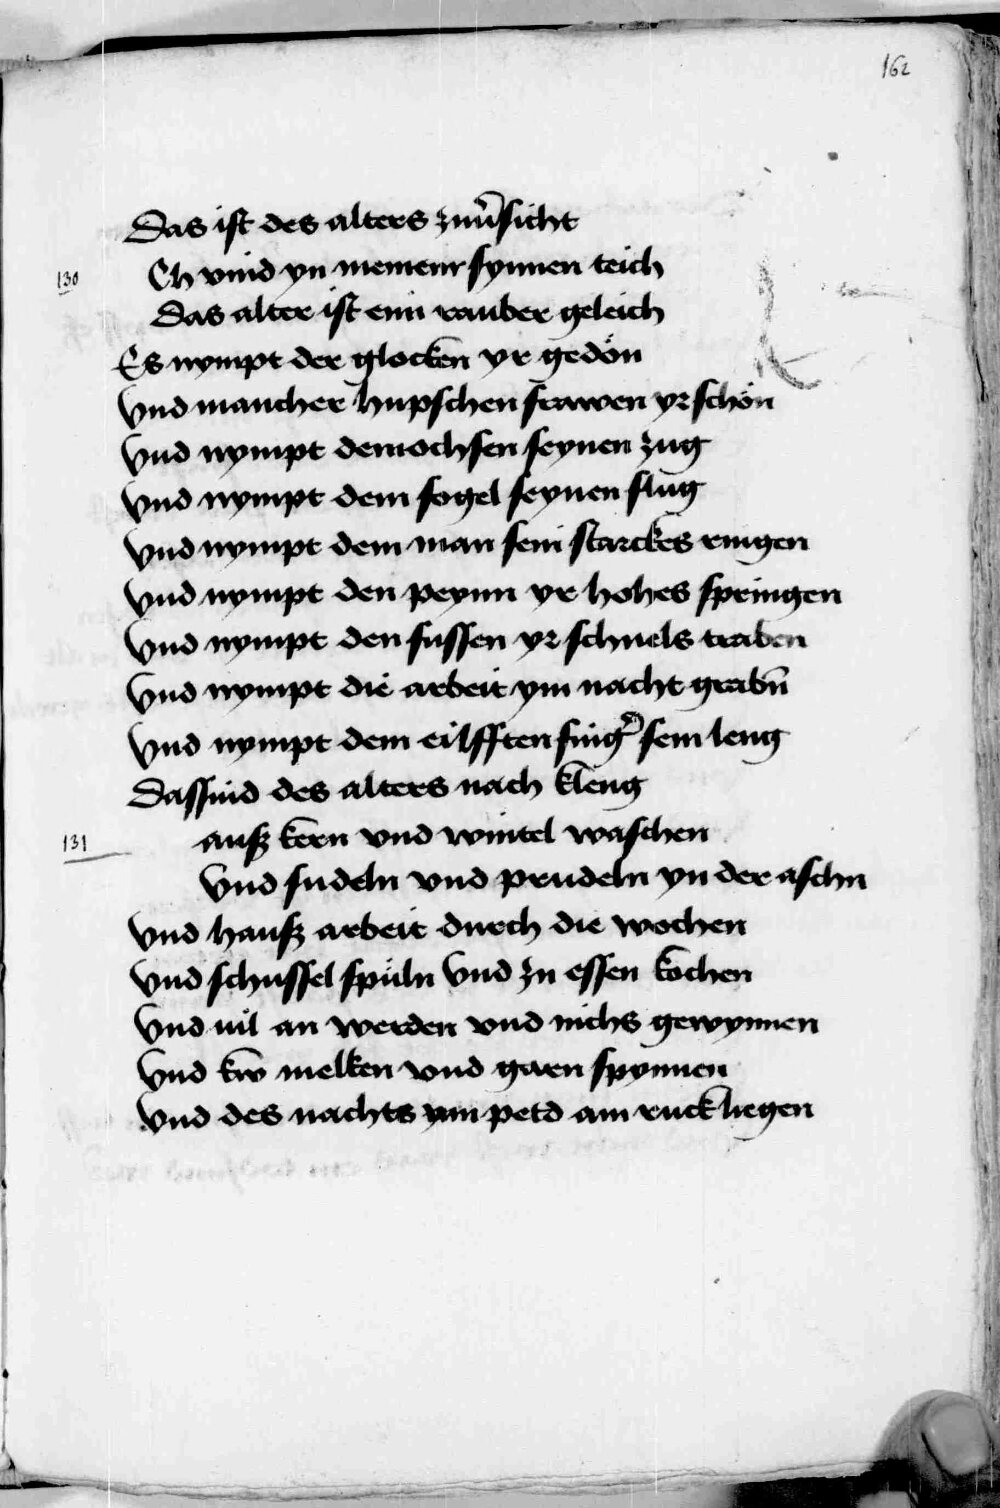 162
Das ist des alters zuuer̃sicht
130
Ch vind yn meinem synnen teich
Das alter ist ein rauber geleich
Es nympt der glocken yr gedön
Vnd mancher hupschen frawen yr schön
Vnd nympt dem ochsen seynen zug
Vnd nympt dem fogel seynen flug
Vnd nympt dem man sein starckes ringen
Vnd nympt den peynn yr hohes springen
Vnd nympt den fussen yr schnels traben
Vnd nympt die arbeit ym nacht grabn̄
Vnd nympt dem eilfften fing̃ sein leng
Das sind des alters nach kleng
131
ausz kern vnd wintel waschen
Vnd sudeln vnd prudeln yn der aschn
Vnd hausz arbeit durch die wochen
Vnd schussel spüln Vnd zu essen kochen
Vnd uil an werden vnd nichs gewynnen
Vnd kw melken vnd garn spynnen
Vnd des nachts ym petd am ruck liegen